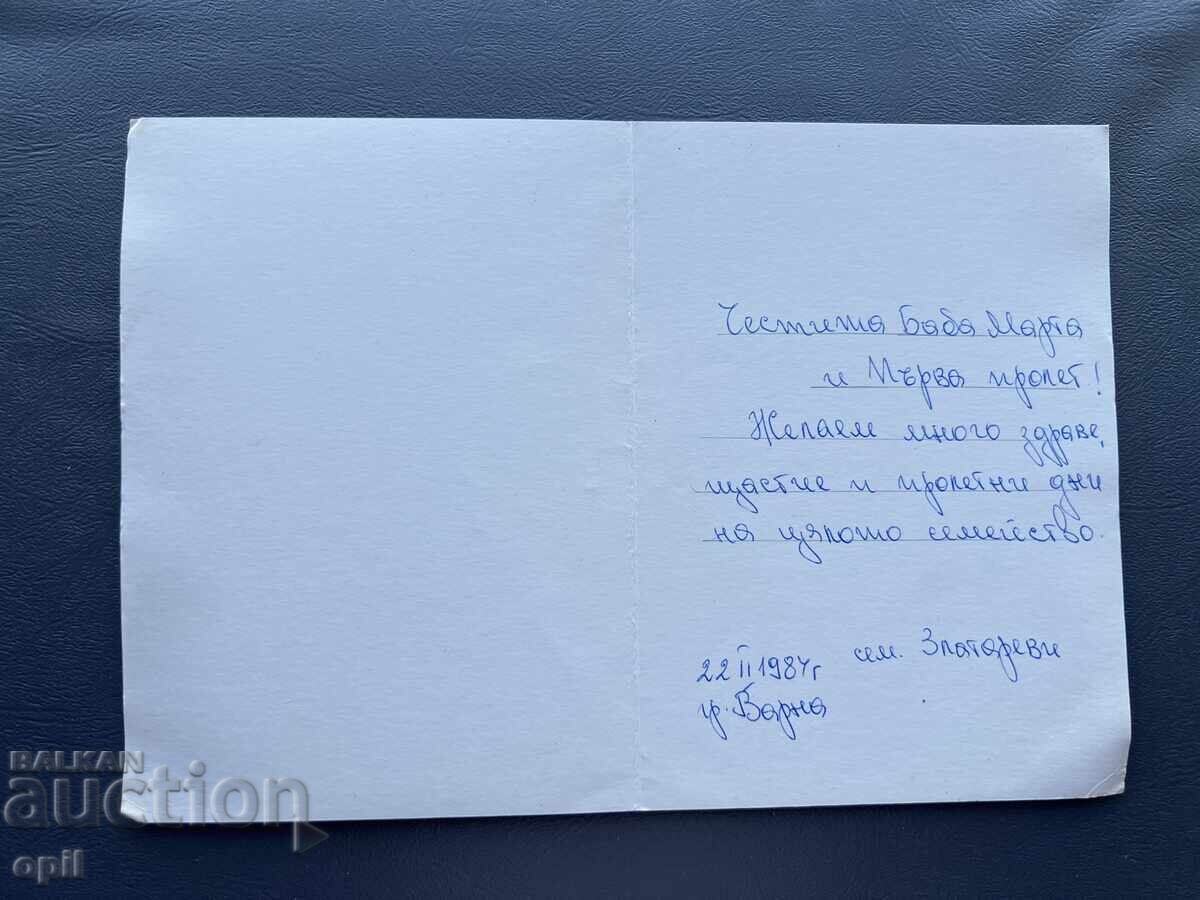 Честита Баба Марта
и Първа пролет!
Желаем много здраве,
щастие и пролетни дни
на цялото семейство.
сем. Златареви
22 II 1984г
гр. Варна
BALKAN
auction
opil